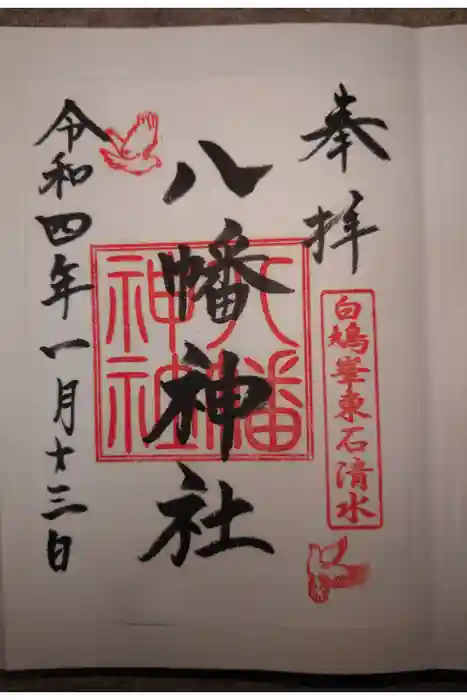 奉拝
白鳩峯東石清水
八幡神社
八幡神社
令和四年一月十三日